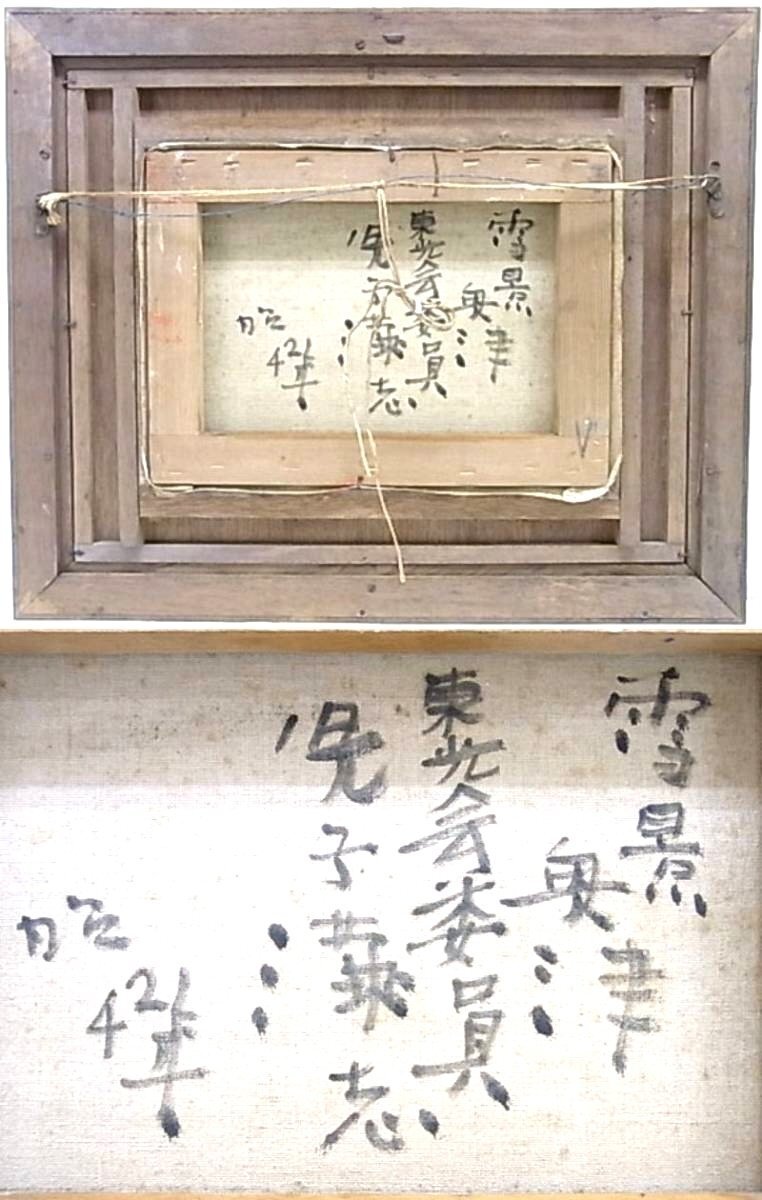 雪景
奥津
東光会委員
児子 志
昭
42年
雪景
奥津
東光会委員
児子 志
昭
42年